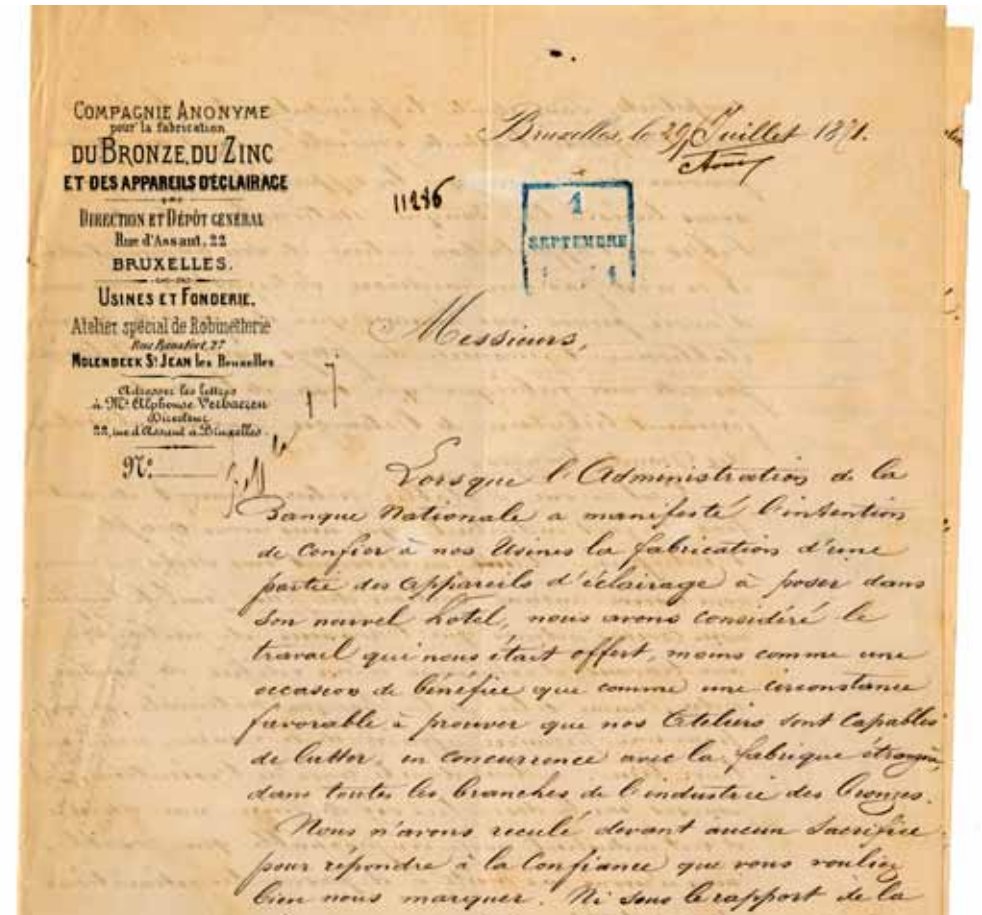 COMPAGNIE ANONYME
pour la fabrication
DU BRONZE, DU ZINC
ET DES APPAREILS D'ÉCLAIRAGE
DIRECTION ET DÉPÔT GÉNÉRAL
Rue d'Assaut, 22
BRUXELLES.
USINES ET FONDERIE,
Atelier spécial de Robinetterie
Rue Ransfort, 27
MOLENBEEK St JEAN lez Bruxelles
Adresser les lettres
à Mr Alphonse Verhaeren
Directeur
22, rue d'Assaut à Bruxelles.
No.
Bruxelles, le 29 Juillet 1871.
Aout
11286
1
SEPTEMBRE
Messieurs,
Lorsque l'Administration de la
Banque Nationale a manifesté l'intention
de confier à nos Usines la fabrication d'une
partie des appareils d'éclairage à poser dans
son nouvel hotel, nous avons considéré le
travail qui nous était offert, moins comme une
occasion de bénéfice que comme une circonstance
favorable à prouver que nos Ateliers sont capables
de lutter, en concurrence avec la fabrique étrangère,
dans toutes les branches de l'industrie des bronzes.
Nous n'avons reculé devant aucun sacrifice
pour répondre à la Confiance que vous vouliez
bien nous marquer. Ni sous le rapport de la